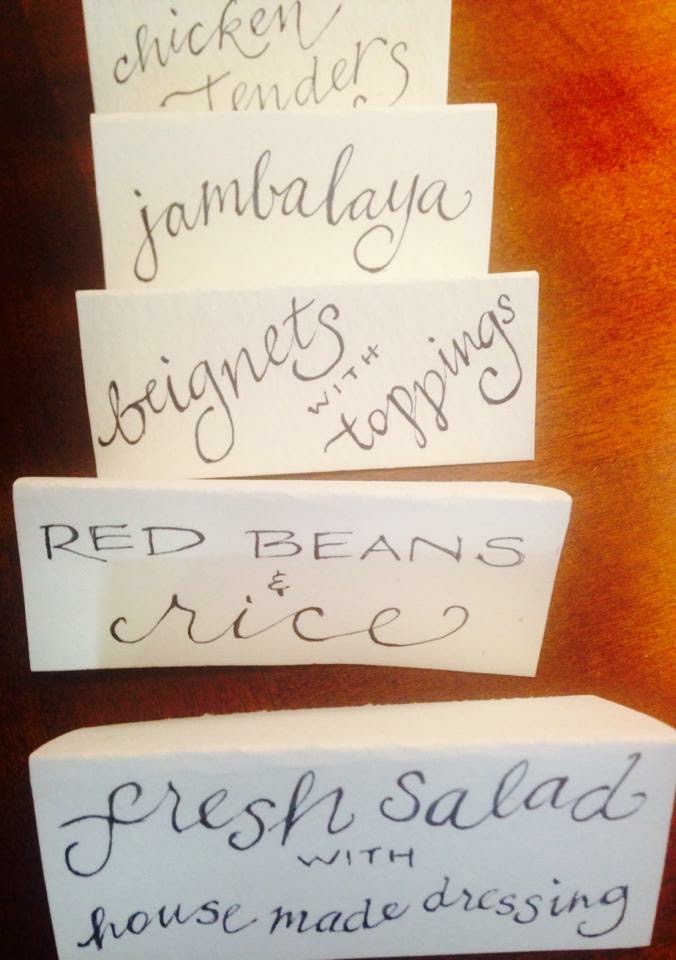 chicken
Tenders
jambalaya
beignets
WITH
toppings
RED BEANS
&
rice
fresh salad
WITH
house made dressing